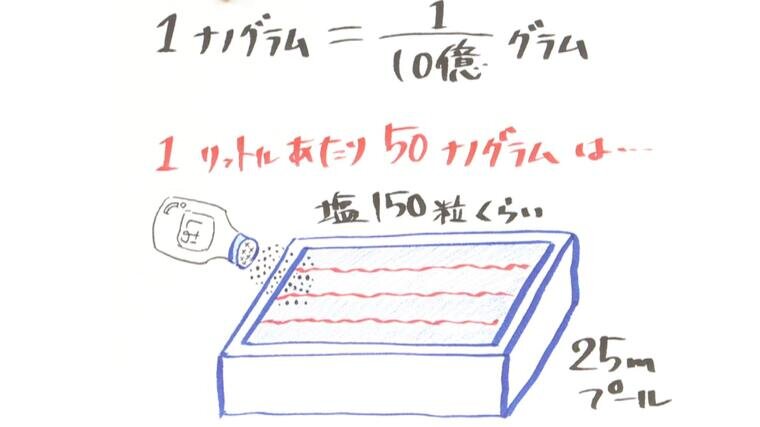 1 ナノグラム = 1/10億 グラム
1 リットルあたり 50 ナノグラムは…
塩150粒くらい
しお
25m
プール